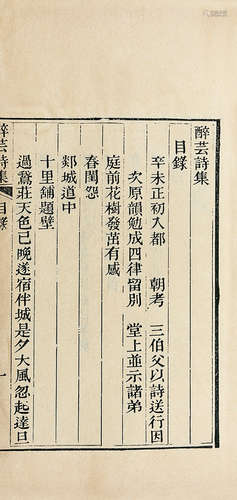 醉芸詩集
目錄
辛未正初入都　朝考　三伯父以詩送行因
次原韻勉成四律留別　堂上並示諸弟
庭前花樹發茁有感
春閨怨
郯城道中
十里舖題壁
過鶖莊天色已晚遂宿伴城是夕大風忽起達旦
醉芸詩集
目錄
一